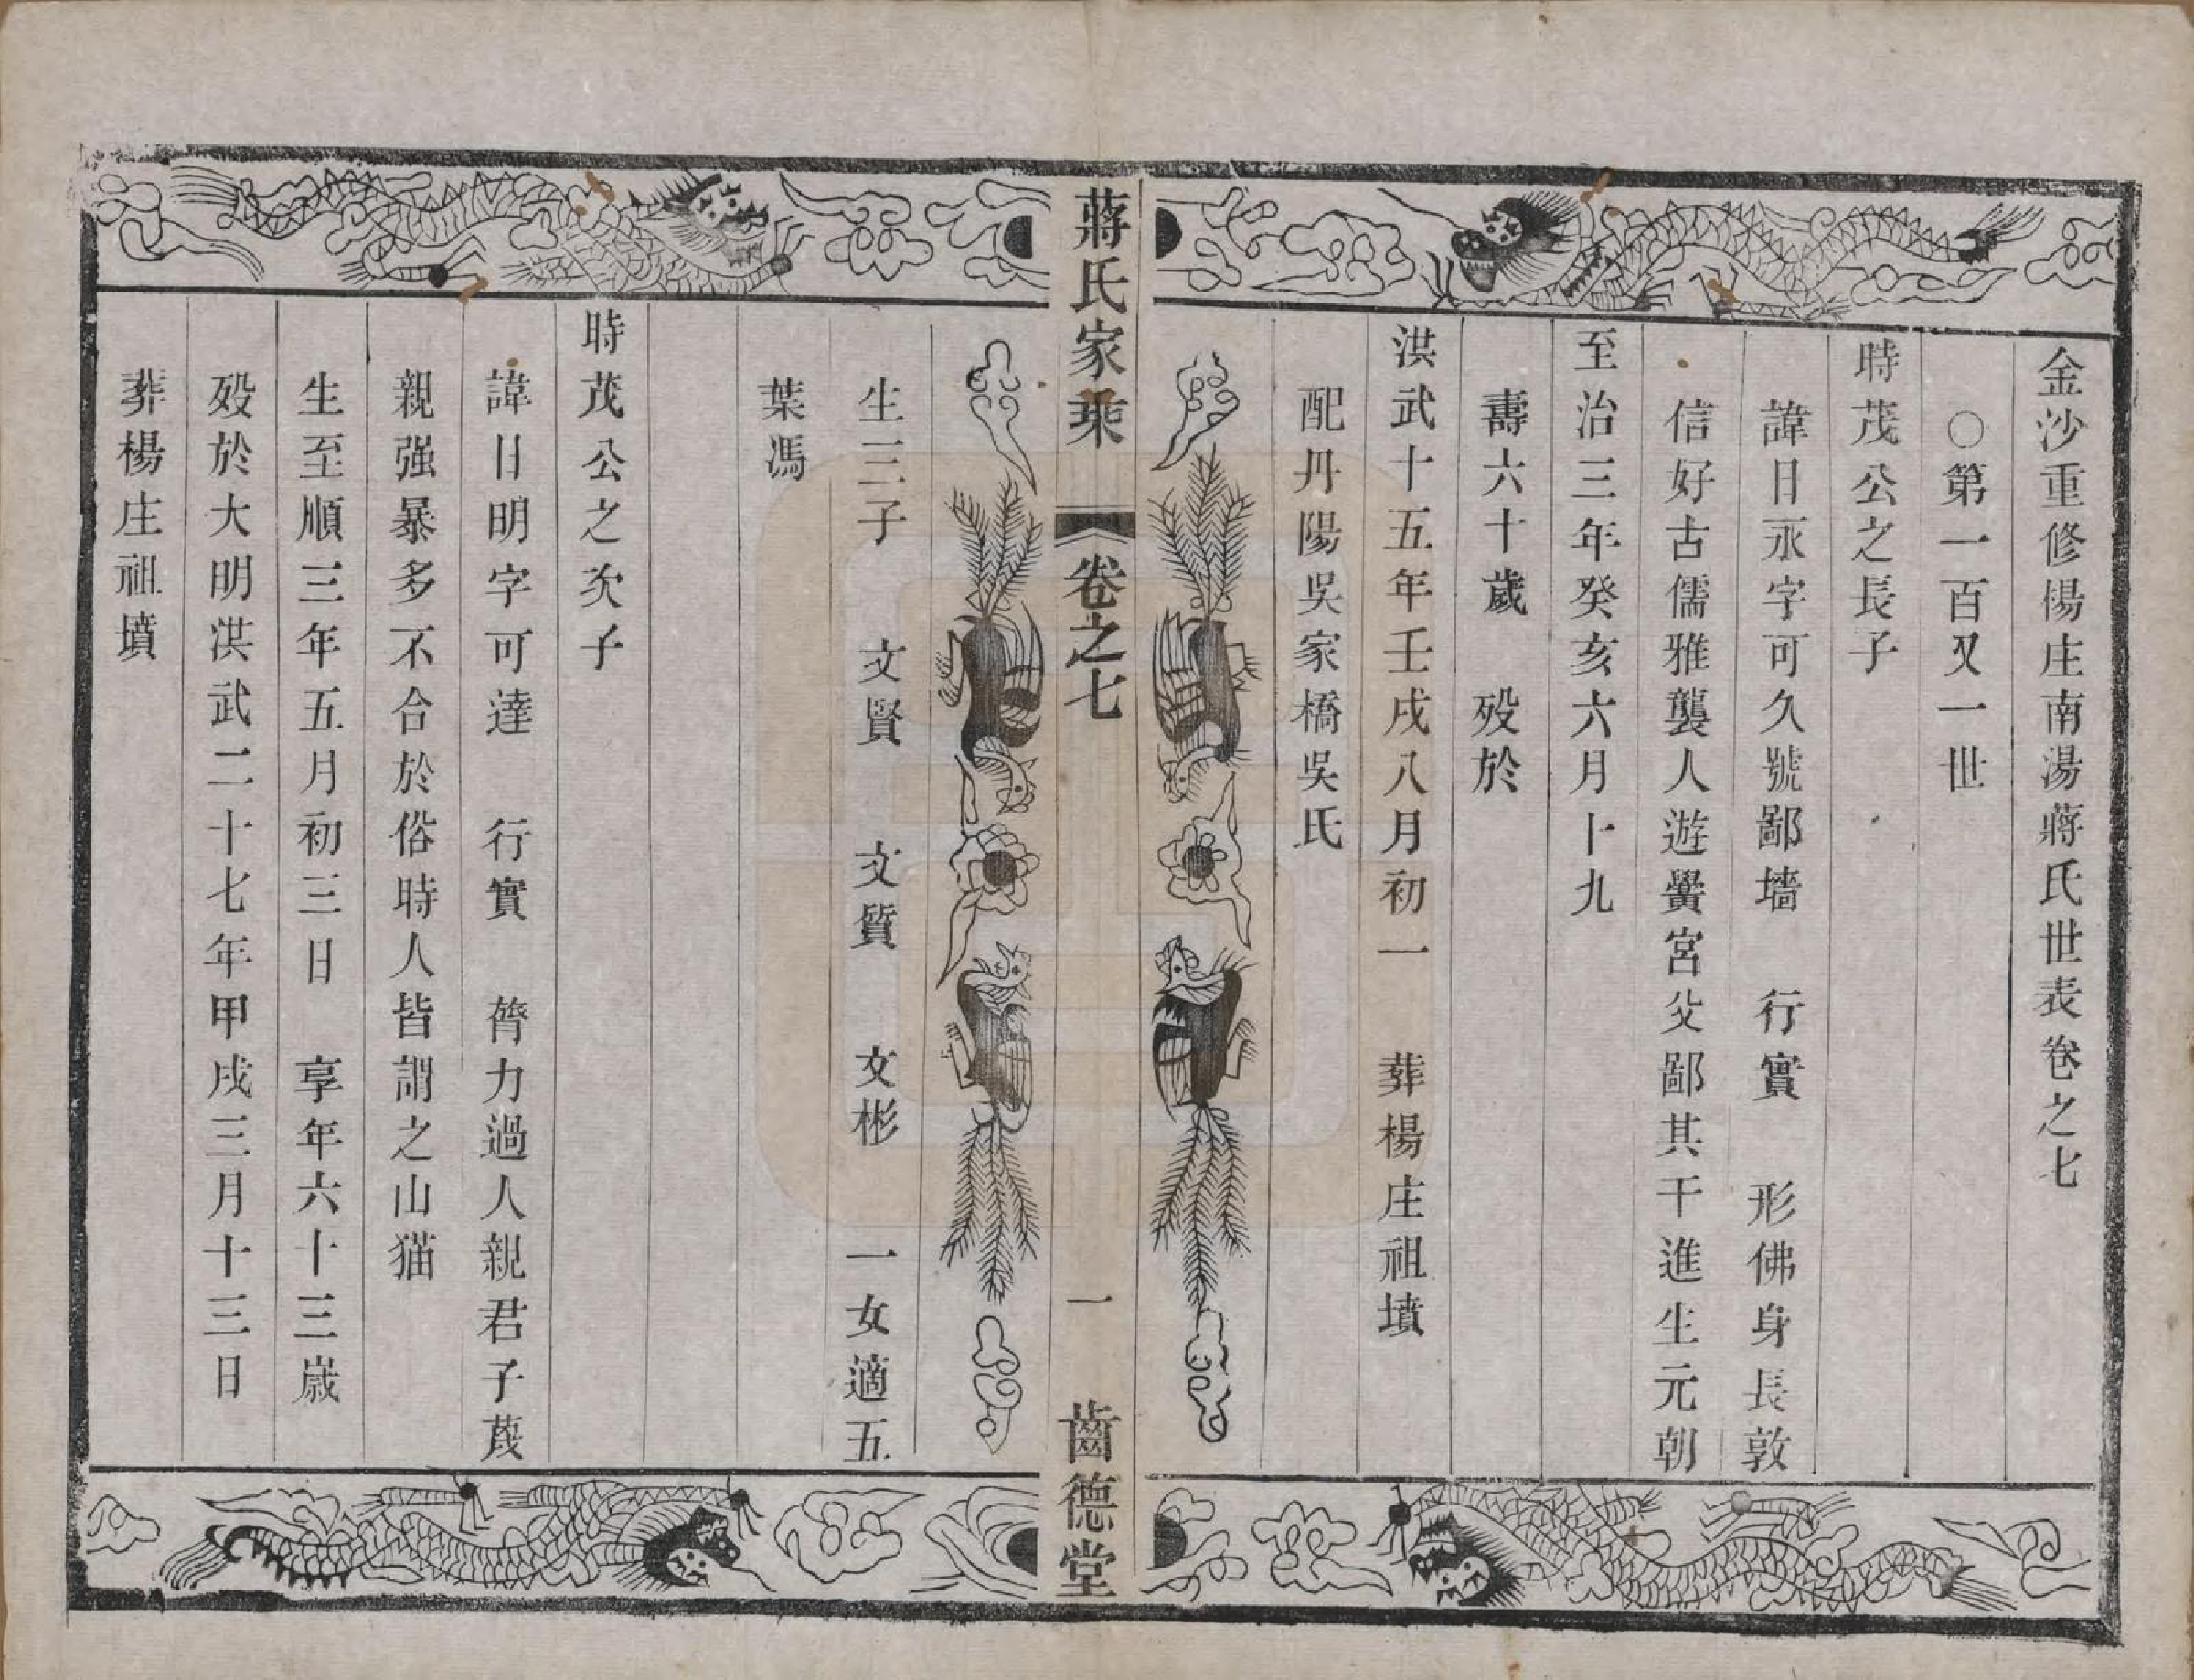 金沙重修楊庄南湯蔣氏世表卷之七
○第一百又一世
時茂公之長子
諱日永字可久號鄙墻　行實　形佛身長敦
信好古儒雅襲人遊黌宮父鄙其干進生元朝
至治三年癸亥六月十九
壽六十歲　歿於
洪武十五年壬戌八月初一　葬楊庄祖墳
配丹陽吳家橋吳氏
蔣氏家乘　卷之七　一　齒德堂
生三子　文賢　文質　文彬　一女適五
葉馮
時茂公之次子
諱日明字可達　行實　膂力過人親君子蔑
親强暴多不合於俗時人皆謂之山猫
生至順三年五月初三日　享年六十三歲
歿於大明洪武二十七年甲戌三月十三日
葬楊庄祖墳